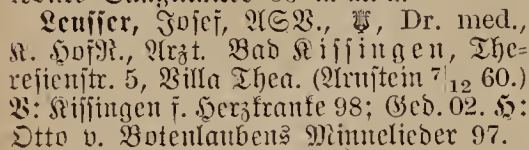 Leusser, Josef, ASV., Dr. med.,
K. HofR., Arzt. Bad Kissingen, The-
resienstr. 5, Villa Thea. (Arnstein 7/12 60.)
V: Kissingen f. Herzkranke 98; Ged. 02. H:
Otto v. Botenlaubens Minnelieder 97.